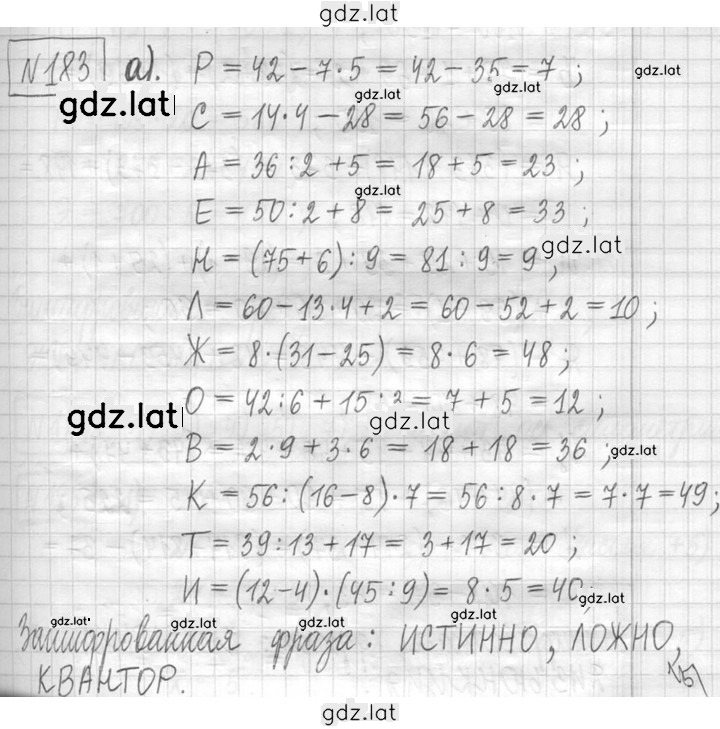 gdz.lat
N183 а). Р = 42 – 7·5 = 42 – 35 = 7 ;
gdz.lat gdz.lat gdz.lat gdz.lat
С = 14·4 – 28 = 56 – 28 = 28 ;
А = 36 : 2 + 5 = 18 + 5 = 23 ;
gdz.lat
Е = 50 : 2 + 8 = 25 + 8 = 33 ;
Н = (75 + 6) : 9 = 81 : 9 = 9 ; gdz.lat
Л = 60 – 13·4 + 2 = 60 – 52 + 2 = 10 ;
Ж = 8·(31 – 25) = 8·6 = 48 ;
О = 42 : 6 + 15 : 3 = 7 + 5 = 12 ;
gdz.lat gdz.lat
В = 2·9 + 3·6 = 18 + 18 = 36 ; gdz.lat
К = 56 : (16 – 8)·7 = 56 : 8·7 = 7·7 = 49 ;
Т = 39 : 13 + 17 = 3 + 17 = 20 ;
И = (12 – 4)·(45 : 9) = 8·5 = 40 gdz.lat
gdz.lat gdz.lat gdz.lat gdz.lat
Зашифрованная фраза : ИСТИННО, ЛОЖНО,
КВАНТОР.
gdz.lat